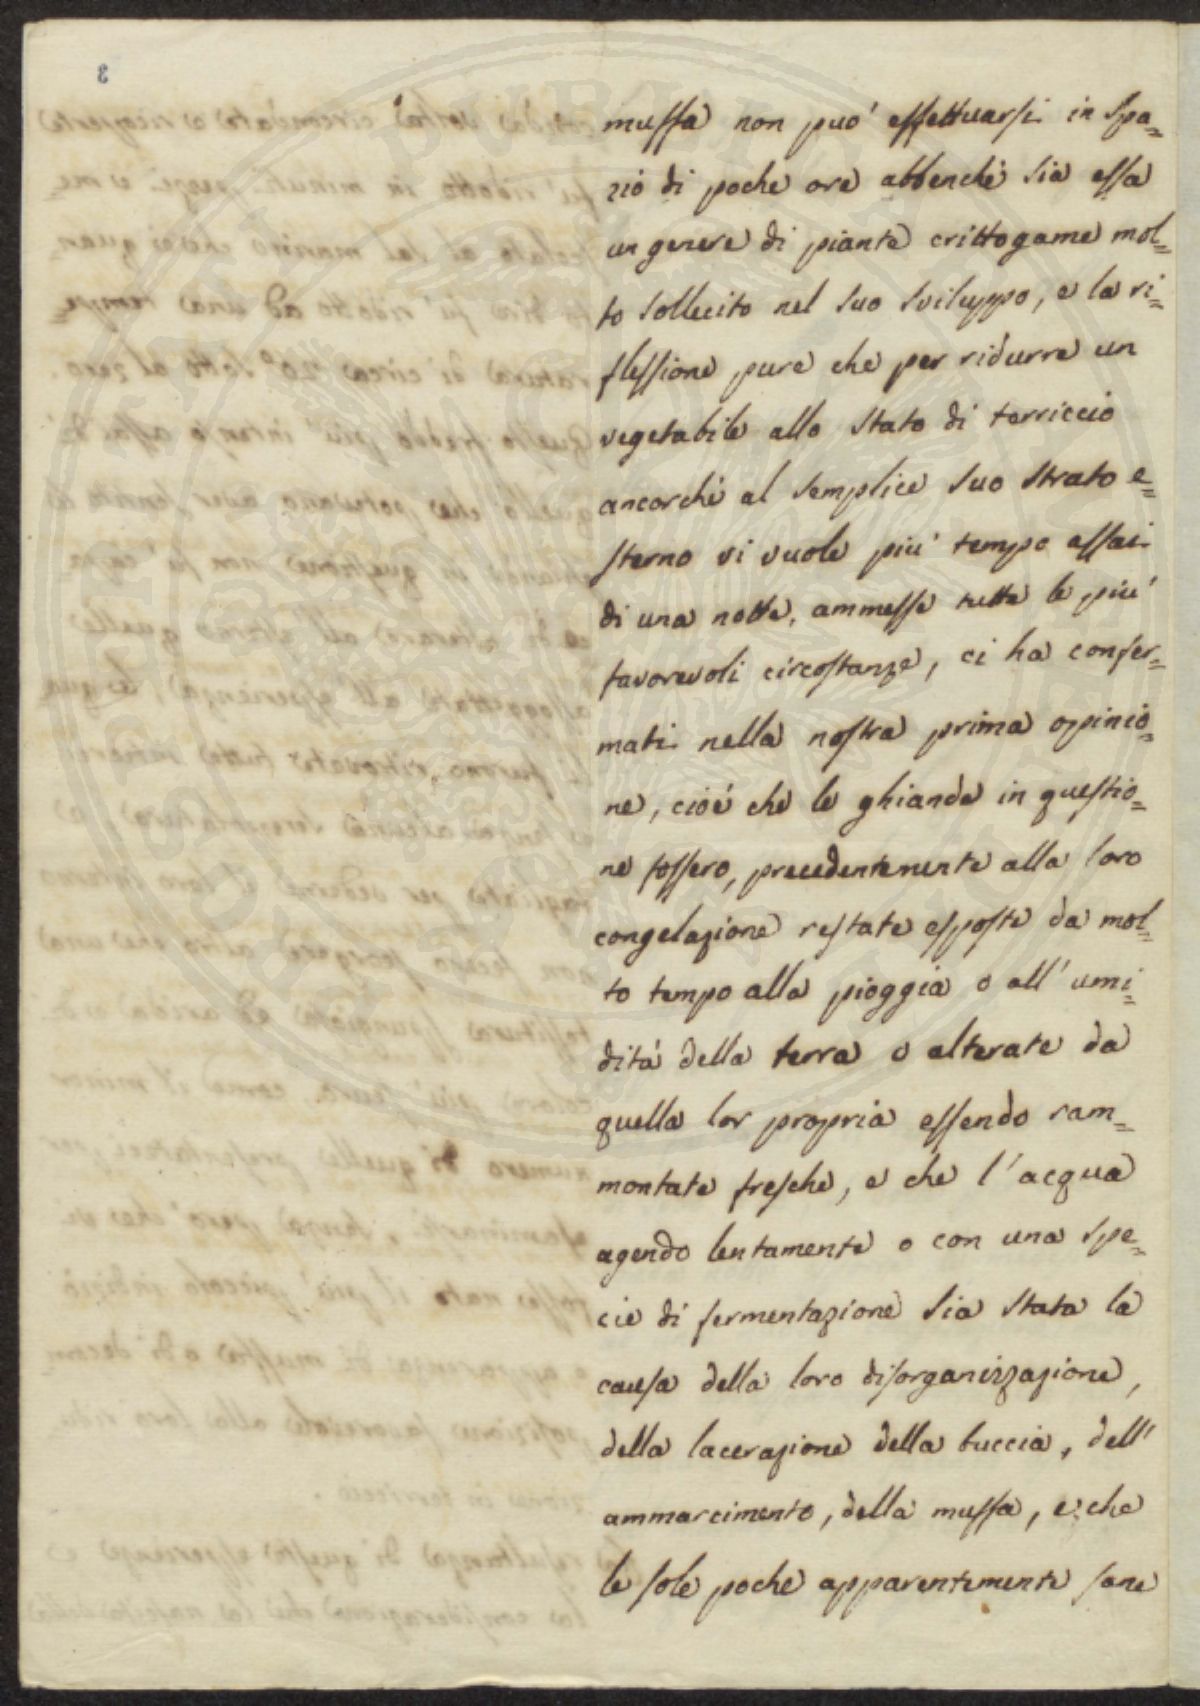 muffa non può effettuarsi in spa=
zio di poche ore abbenché sia essa
un genere di piante crittogame mol=
to sollecito nel suo sviluppo, e la ri=
flessione pure che per ridurre un
vegetabile allo stato di terriccio
ancorché al semplice suo strato e=
sterno vi vuole piú tempo assai
di una notte, ammesse tutte le piú
favorevoli circostanze, ci ha confer=
mati nella nostra prima opinio=
ne, cioé che le ghiande in questio=
ne fossero, precedentemente alla loro
congelazione restate esposte da mol=
to tempo alla pioggia o all' umi=
ditá della terra o alterate da
quella lor propria essendo ram=
montate fresche, e che l' acqua
agendo lentamente o con una spe=
cie di fermentazione sia stata la
causa della loro disorganizzazione,
della lacerazione della buccia, dell'
ammarcimento, della muffa, e che
le sole poche apparentemente sane